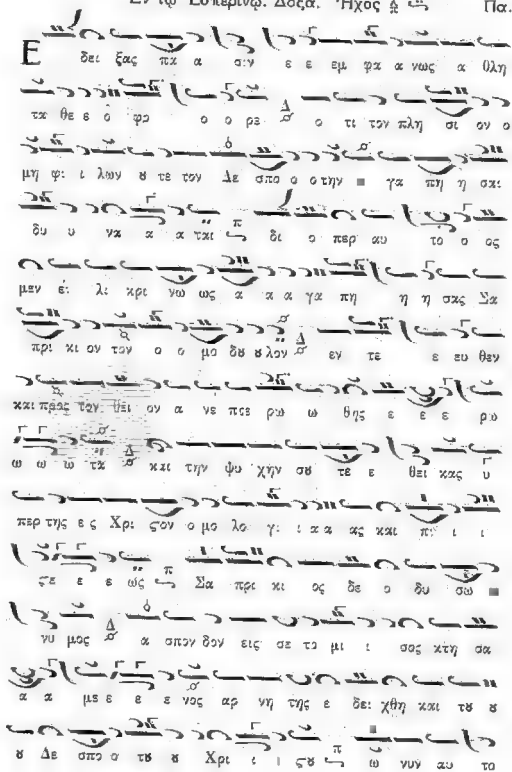 Εν τῳ Εσπερινῳ. Δοξα. Ἦχος Πα.
Ε δει ξας πα α σιν ε ε εμ φα α νως α θλη
τα θε ε ο φρ ο ο ρε Δ ο τι τον πλη σι ον ο
μη φι ι λων ȣ τε τον Δε σπο ο ο την γα πη η σαι
δυ υ να α α ται π δι ο περ αυ το ο ος
μεν ει λι κρι νω ως α α α γα πη η η σας Σα
πρι κι ον τον ο ο μο δȣ ȣ λον Δ εν τε ε ευ θεν
και προς τον θει ον α νε πτε ρω ω θης ε ε ε ρω
ω ω ω τα Δ και την ψυ χην σȣ τε ε θει κας υ
περ της ε ς Χρι ϛον ο μο λο γι ι α α ας και πι ι ι
ϛε ε ε ως π Σα πρι κι ος δε ο δυ σω
νυ μος Δ α σπον δον εις σε το μι ι σος κτη σα
α α με ε ε ε νος αρ νη της ε δει χθη και τȣ ȣ
ȣ Δε σπο ο τȣ ȣ Χρι ι ι ϛȣ π ω νυν αυ το